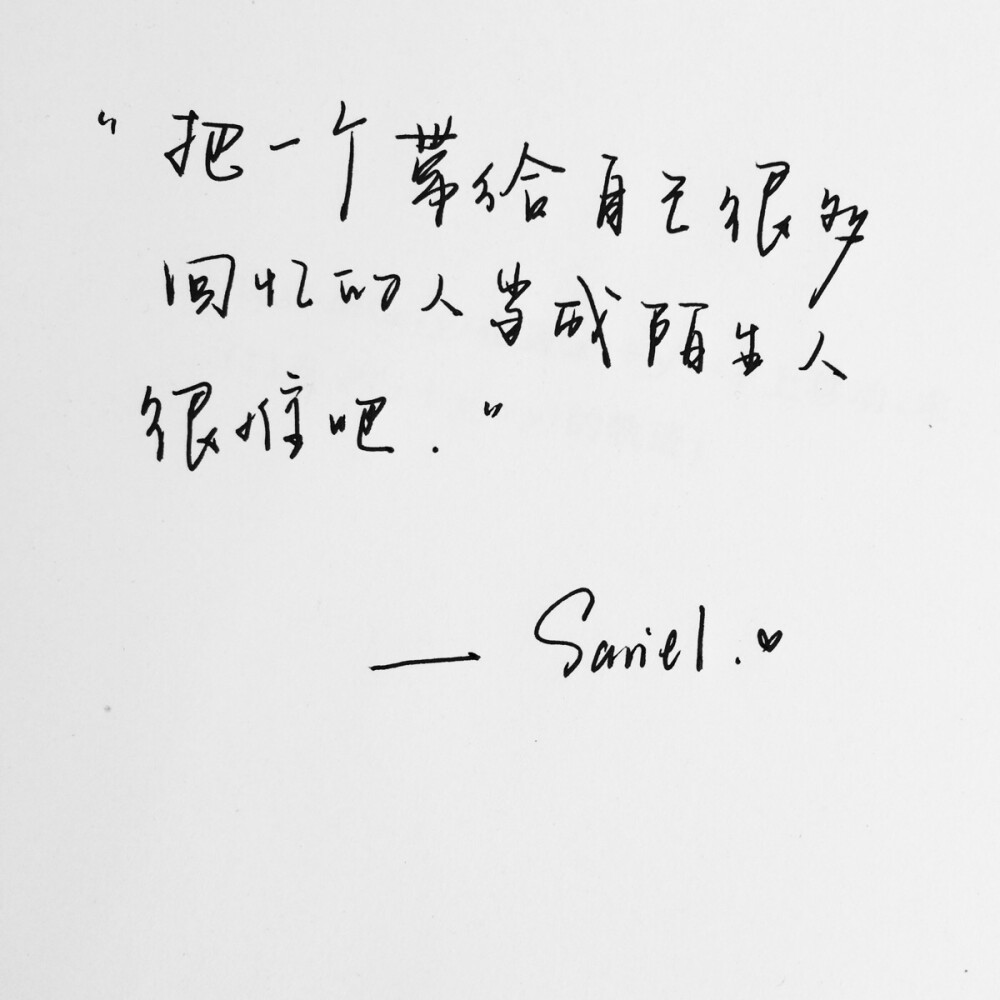 "把一个带给自己很多
回忆的人当成陌生人
很难吧."
— Saniel.♥